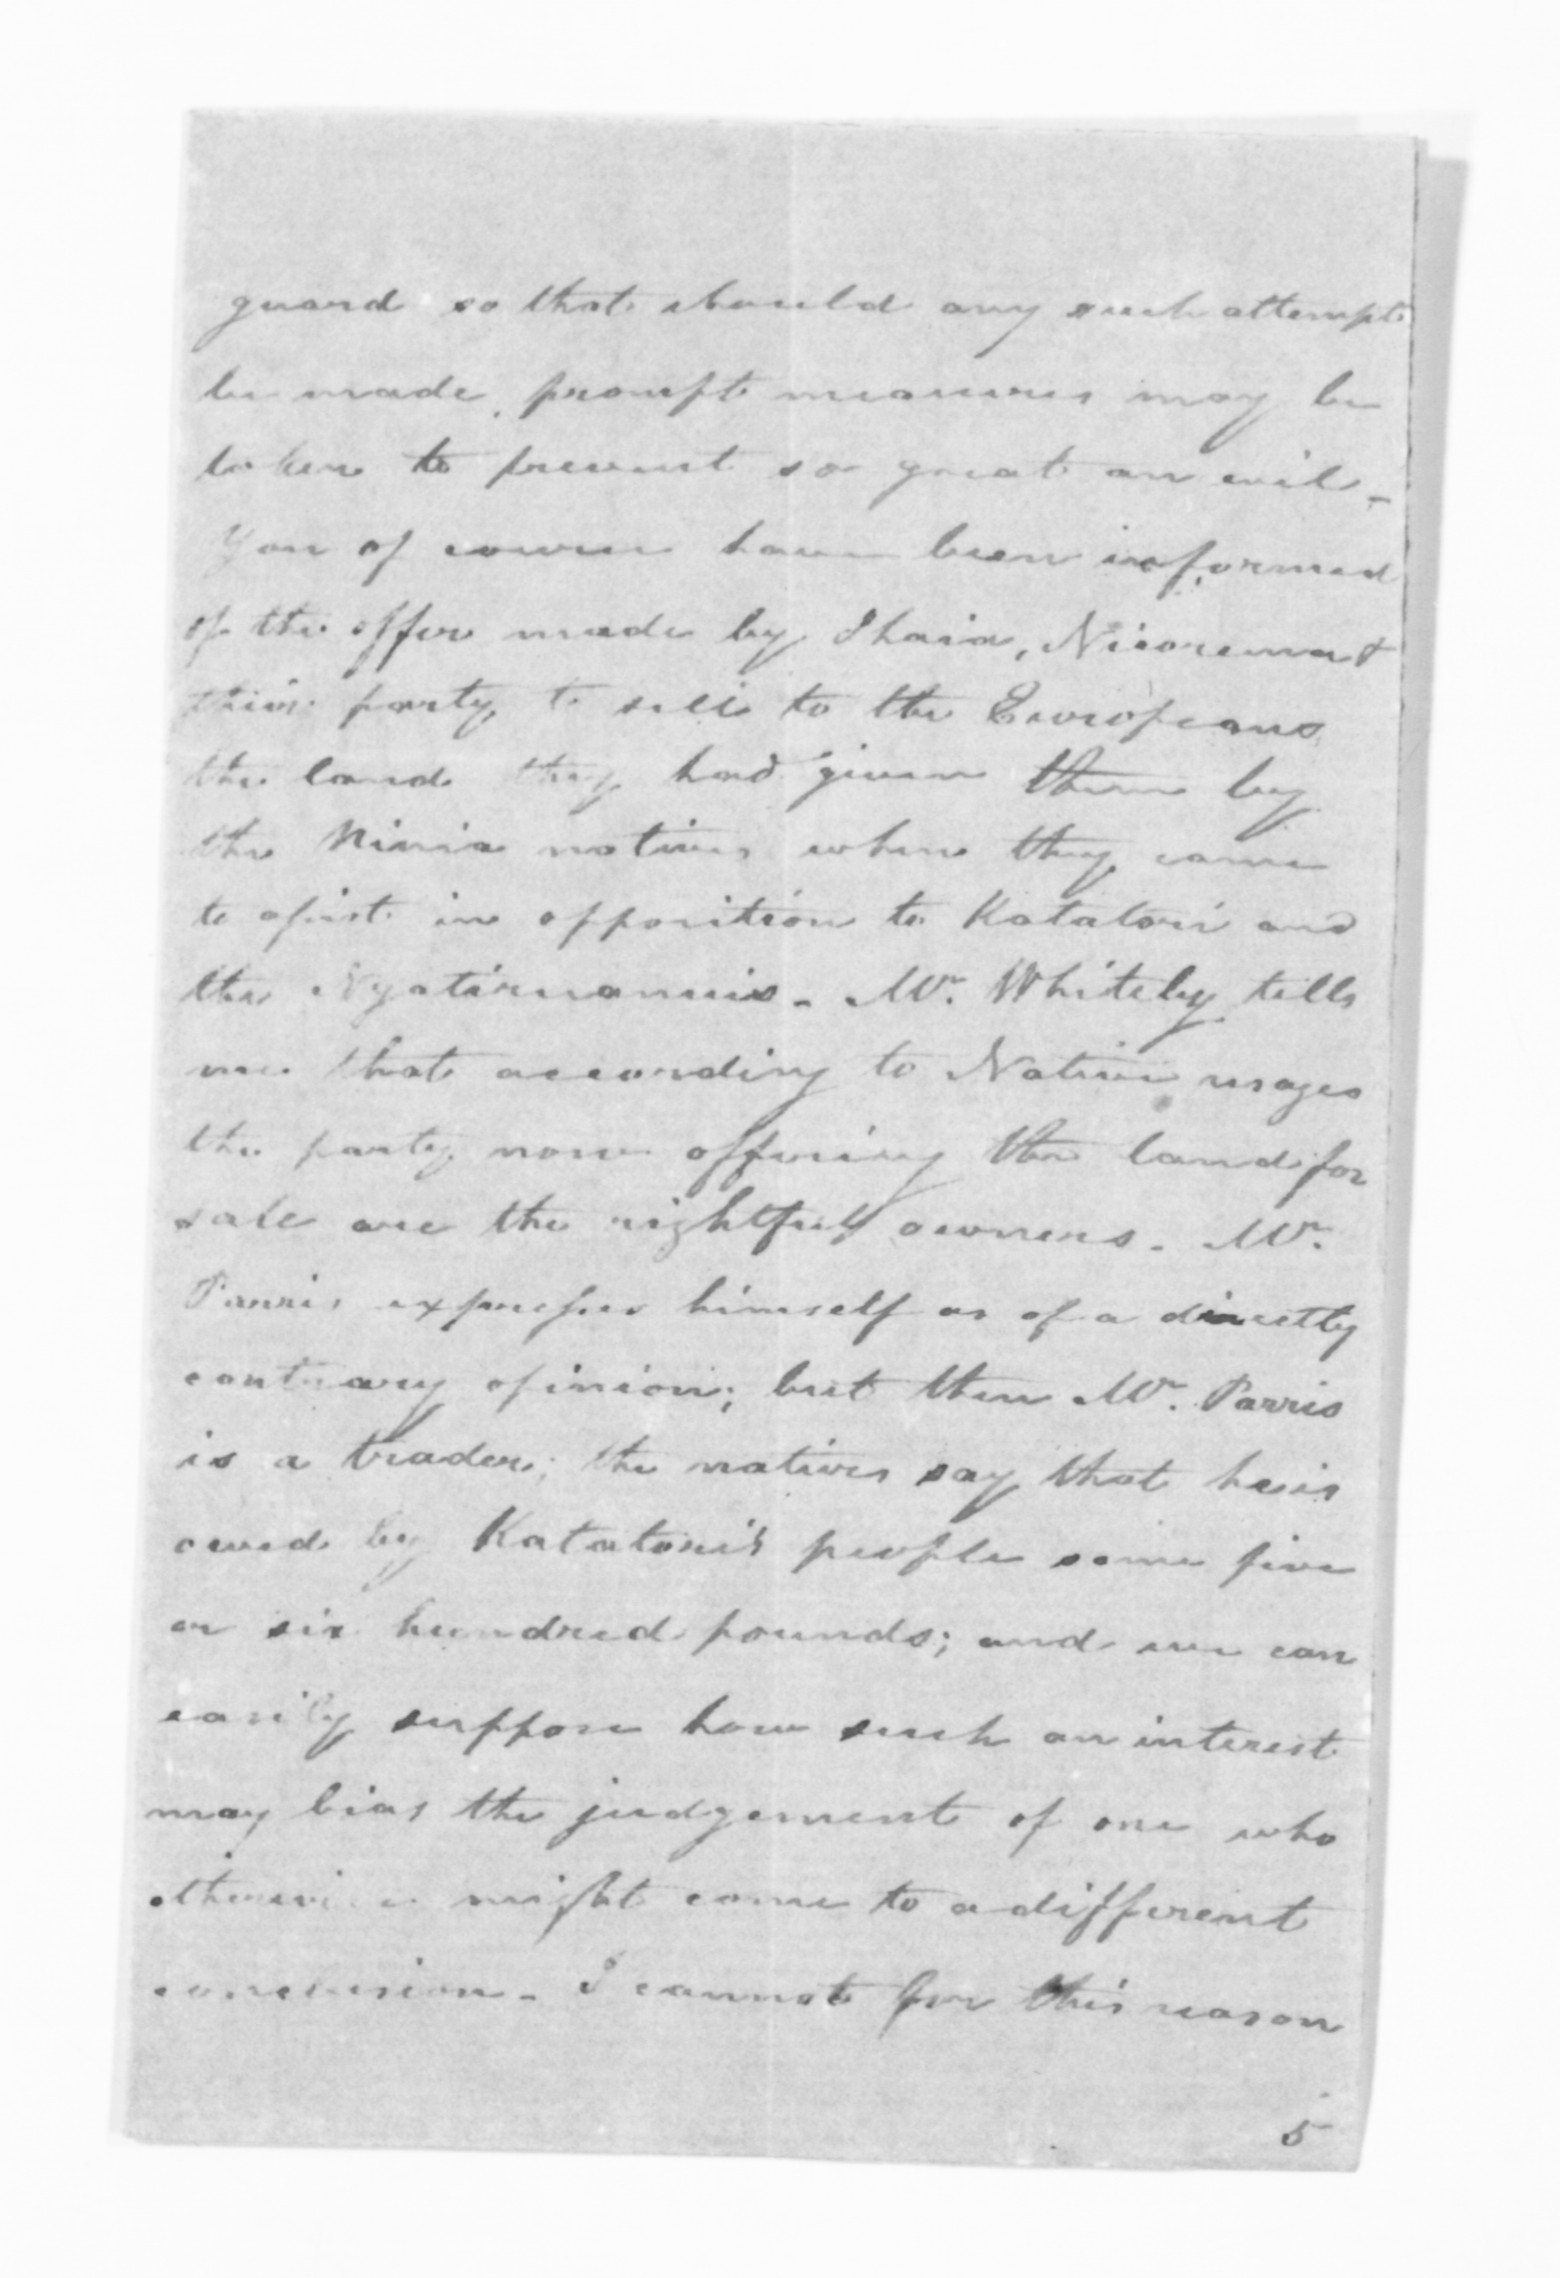 guard so that should any such attempt
be made, prompt measures may be
taken to prevent so great an evil -
You of course have been informed
of the offer made by Ihaia, Nicorema &
their party to sell to the Europeans
the land they had given them by
the Ninia natives when they came
to assist in opposition to Katatori and
the Nyatiruanuis - Mr. Whiteley tells
me that according to Native usages
the party now offering the land for
sale are the rightful owners - Mr.
Parris expresses himself as of a directly
contrary opinion; but then Mr. Parris
is a trader; the natives say that he is
owed by Katatori's people some five
or six hundred pounds; and we can
easily suppose how such an interest
may bias the judgement of one who
otherwise might come to a different
conclusion - I cannot for this reason
5